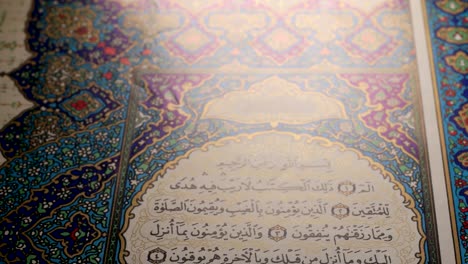 بِسْمِ اللَّهِ الرَّحْمَٰنِ الرَّحِيمِ
الٓمٓ ﴿١﴾ ذَٰلِكَ الْكِتَٰبُ لَا رَيْبَ فِيهِ هُدًى
لِلْمُتَّقِينَ ﴿٢﴾ الَّذِينَ يُؤْمِنُونَ بِالْغَيْبِ وَيُقِيمُونَ الصَّلَوٰةَ
وَمِمَّا رَزَقْنَٰهُمْ يُنْفِقُونَ ﴿٣﴾ وَالَّذِينَ يُؤْمِنُونَ بِمَٓا اُنْزِلَ
اِلَيْكَ وَمَٓا اُنْزِلَ مِنْ قَبْلِكَ وَبِالْاٰخِرَةِ هُمْ يُوقِنُونَ ﴿٤﴾